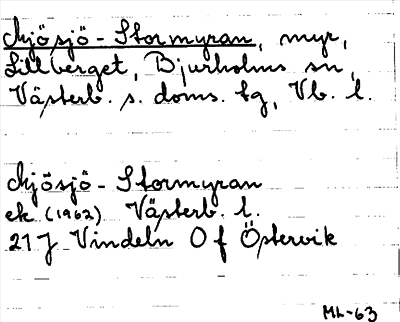 Mjösjö-Stormyran, myr,
Lillberget, Bjurholms sn,
Västerb. s. doms. tg, Vb. l.
Mjösjö-Stormyran
ek (1962) Västerb. l.
21 J Vindeln O f Östervik
ML-63